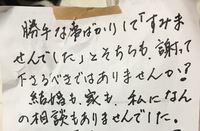 勝手な事ばかりして「すみま
せんでした」とそちらも、謝って
下さるべきではありませんか?
結婚も、家も、私になん
の相談もありませんでした。